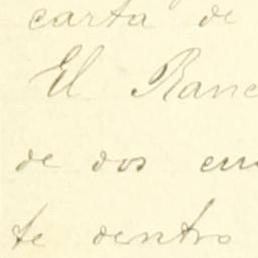 carta de
El Banc
de dos em
te dentro